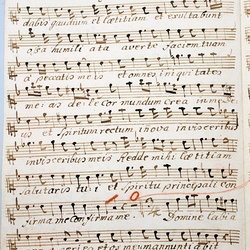 dabis gaudium et lætitiam et exulta bunt
ossa humili ata averte faciem tuam
a peccatis meis et omnes iniquitates
me: as de le cor mundum Crea in me De:
us et Spiritum rectum innova in visceribus
in visceribus meis Redde mihi lætitiam
Salutaris tu: i et Spiritu principali Con
firma me Confirma me. Domine Labia
et os meum annuntia bit